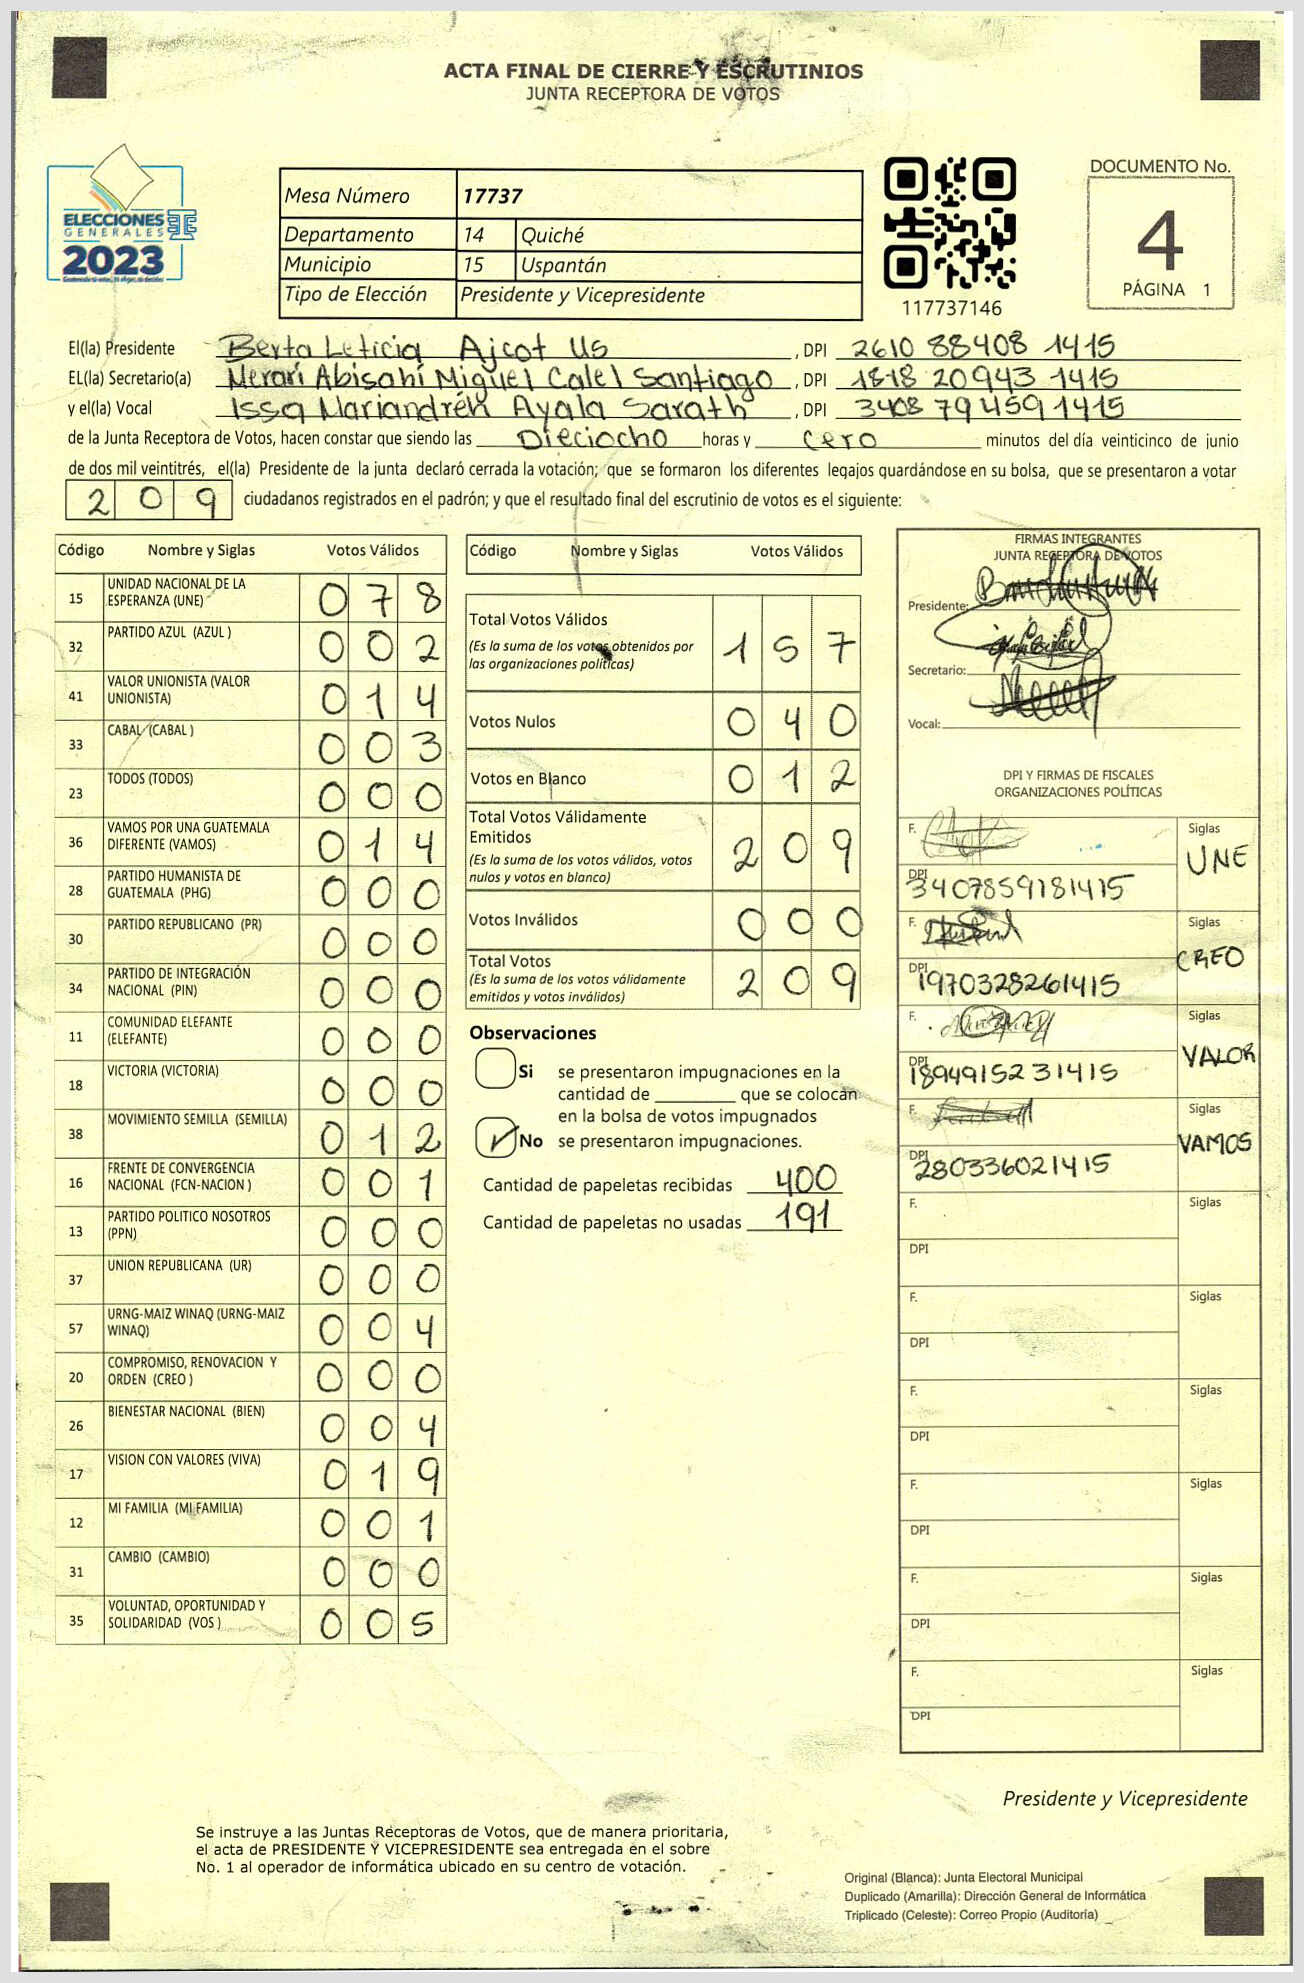 ACTA FINAL DE CIERRE Y ESCRUTINIOS
JUNTA RECEPTORA DE VOTOS
ELECCIONES
GENERALES
2023
Mesa Número 17737
Departamento 14 Quiché
Municipio 15 Uspantán
Tipo de Elección Presidente y Vicepresidente
117737146
DOCUMENTO No.
4
PÁGINA 1
El(la) Presidente Berta Leticia Ajcot Us, DPI 2610 88408 1415
EL(la) Secretario(a) Merari Abisahí Miguel Calel Santiago, DPI 1818 20943 1415
y el(la) Vocal Issa Mariandréh Ayala Sarath, DPI 3408 79459 1415
de la Junta Receptora de Votos, hacen constar que siendo las Dieciocho horas y cero minutos del día veinticinco de junio
de dos mil veintitrés, el(la) Presidente de la junta declaró cerrada la votación; que se formaron los diferentes legajos quardándose en su bolsa, que se presentaron a votar
209 ciudadanos registrados en el padrón; y que el resultado final del escrutinio de votos es el siguiente:
Código Nombre y Siglas Votos Válidos
15 UNIDAD NACIONAL DE LA ESPERANZA (UNE) 078
32 PARTIDO AZUL (AZUL ) 002
41 VALOR UNIONISTA (VALOR UNIONISTA) 014
33 CABAL (CABAL ) 003
23 TODOS (TODOS) 000
36 VAMOS POR UNA GUATEMALA DIFERENTE (VAMOS) 014
28 PARTIDO HUMANISTA DE GUATEMALA (PHG) 000
30 PARTIDO REPUBLICANO (PR) 000
34 PARTIDO DE INTEGRACIÓN NACIONAL (PIN) 000
11 COMUNIDAD ELEFANTE (ELEFANTE) 000
18 VICTORIA (VICTORIA) 000
38 MOVIMIENTO SEMILLA (SEMILLA) 012
16 FRENTE DE CONVERGENCIA NACIONAL (FCN-NACION ) 001
13 PARTIDO POLITICO NOSOTROS (PPN) 000
37 UNION REPUBLICANA (UR) 000
57 URNG-MAIZ WINAQ (URNG-MAIZ WINAQ) 004
20 COMPROMISO, RENOVACION Y ORDEN (CREO ) 000
26 BIENESTAR NACIONAL (BIEN) 004
17 VISION CON VALORES (VIVA) 019
12 MI FAMILIA (MI FAMILIA) 001
31 CAMBIO (CAMBIO) 000
35 VOLUNTAD, OPORTUNIDAD Y SOLIDARIDAD (VOS ) 005
Código Nombre y Siglas Votos Válidos
Total Votos Válidos 157
(Es la suma de los votos obtenidos por
las organizaciones políticas)
Votos Nulos 040
Votos en Blanco 012
Total Votos Válidamente
Emitidos 209
(Es la suma de los votos válidos, votos
nulos y votos en blanco)
Votos Inválidos 000
Total Votos 209
(Es la suma de los votos válidamente
emitidos y votos inválidos)
Observaciones
Si se presentaron impugnaciones en la
cantidad de ________ que se colocan
en la bolsa de votos impugnados
No se presentaron impugnaciones.
Cantidad de papeletas recibidas 400
Cantidad de papeletas no usadas 191
FIRMAS INTEGRANTES
JUNTA RECEPTORA DE VOTOS
Presidente:
Secretario:
Vocal:
DPI Y FIRMAS DE FISCALES
ORGANIZACIONES POLÍTICAS
F. Siglas UNE
DPI 3407859181415
F. Siglas CREO
DPI 1970328261415
F. Siglas VALOR
DPI 1894915231415
F. Siglas VAMOS
DPI 280336021415
F. Siglas
DPI
F. Siglas
DPI
F. Siglas
DPI
F. Siglas
DPI
F. Siglas
DPI
F. Siglas
DPI
Presidente y Vicepresidente
Se instruye a las Juntas Receptoras de Votos, que de manera prioritaria,
el acta de PRESIDENTE Y VICEPRESIDENTE sea entregada en el sobre
No. 1 al operador de informática ubicado en su centro de votación.
Original (Blanca): Junta Electoral Municipal
Duplicado (Amarilla): Dirección General de Informática
Triplicado (Celeste): Correo Propio (Auditoría)